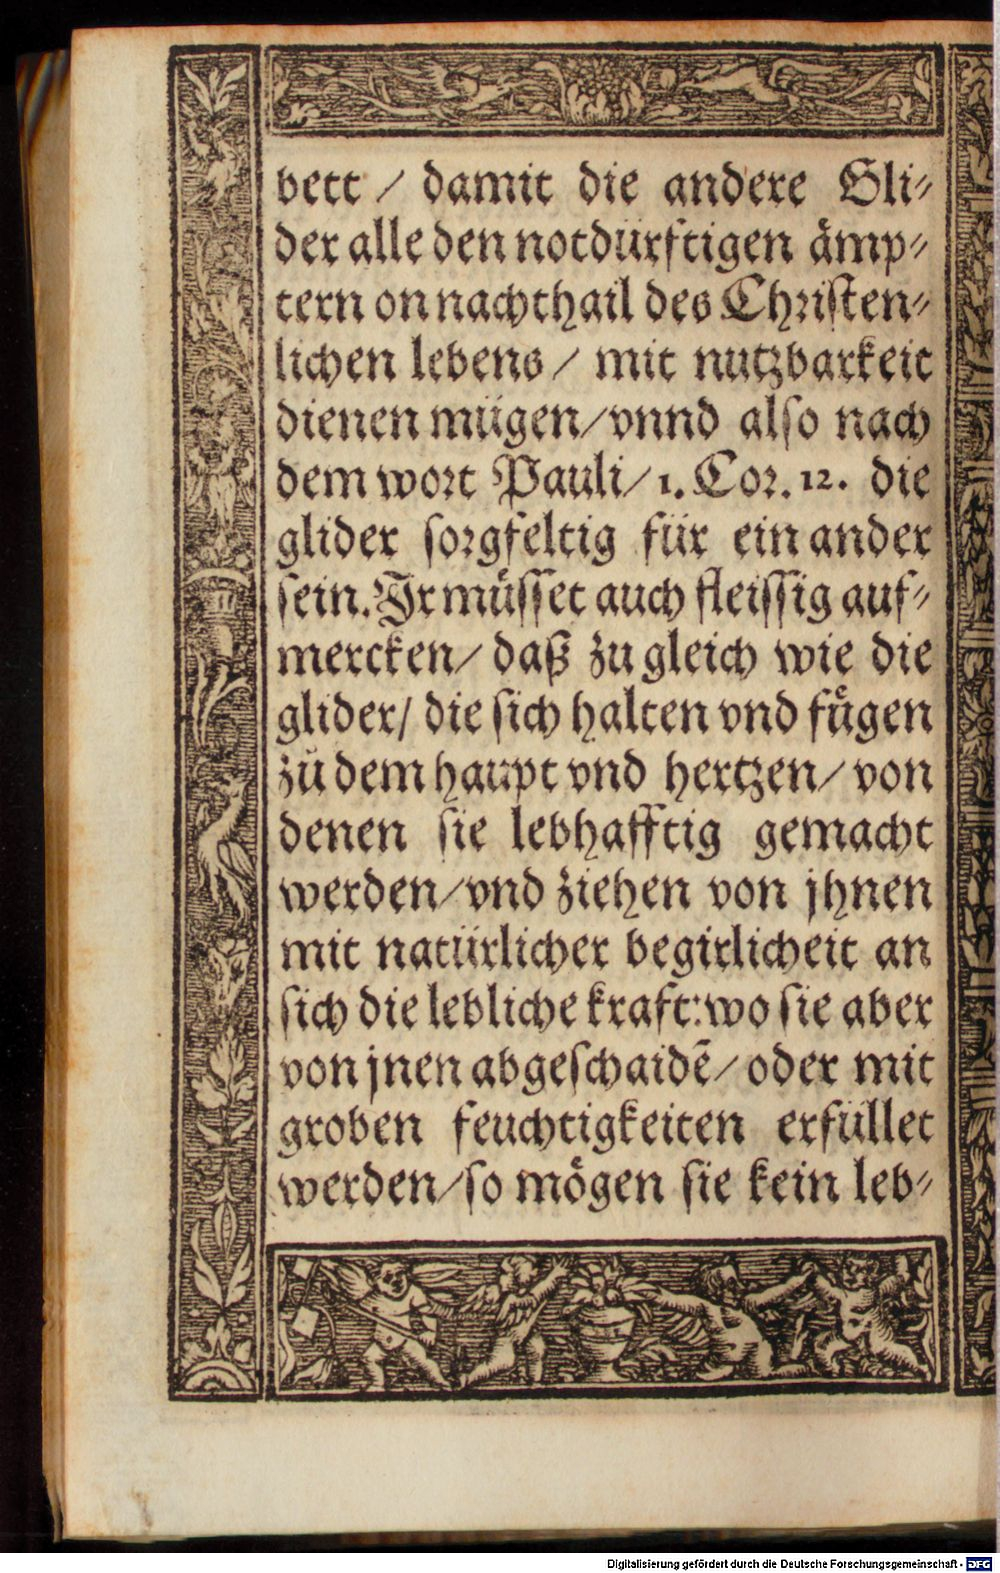 bett / damit die andere Gli⸗
der alle den notdürftigen ämp⸗
tern on nachthail des Christen⸗
lichen lebens / mit nutzbarkeit
dienen mügen / vnnd also nach
dem wort Pauli / 1. Cor. 12. die
glider sorgfeltig für ein ander
sein. Ir müsset auch fleissig auf⸗
mercken / daß zu gleich wie die
glider / die sich halten vnd fuͤgen
zů dem haupt vnd hertzen / von
denen sie lebhafftig gemacht
werden / vnd ziehen von jhnen
mit natürlicher begirlicheit an
sich die lebliche kraft: wo sie aber
von jnen abgeschaidē / oder mit
groben feuchtigkeiten erfüllet
werden / so mögen sie kein leb⸗
Digitalisierung gefördert durch die Deutsche Forschungsgemeinschaft - DFG